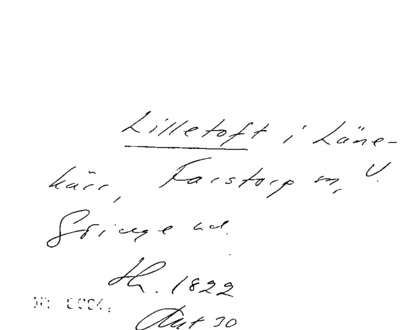 Lilletoft i Läne-
kärr, Farstorp sn, V.
Göinge hd.
Th. 1822
Aut 30